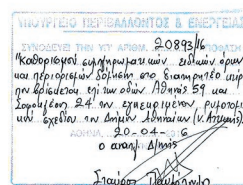 ΥΠΟΥΡΓΕΙΟ ΠΕΡΙΒΑΛΛΟΝΤΟΣ & ΕΝΕΡΓΕΙΑΣ
ΣΥΝΟΔΕΥΕΙ ΤΗΝ ΥΠ' ΑΡΙΘΜ. 20893/16
"Καθορισμού συμπληρωματικών ειδικών όρων
και περιορισμών δόμησης στο διατηρητέο κτί-
ριο
επί των οδών Αθηνάς 59 και
24 του εγκεκριμένου ρυμοτομι-
κού σχεδίου του Δήμου Αθηναίων (ν. Αττικής)."
ΑΘΗΝΑ 20-04-6
Ο αναπλ. Δ/ντής
Σταύρος